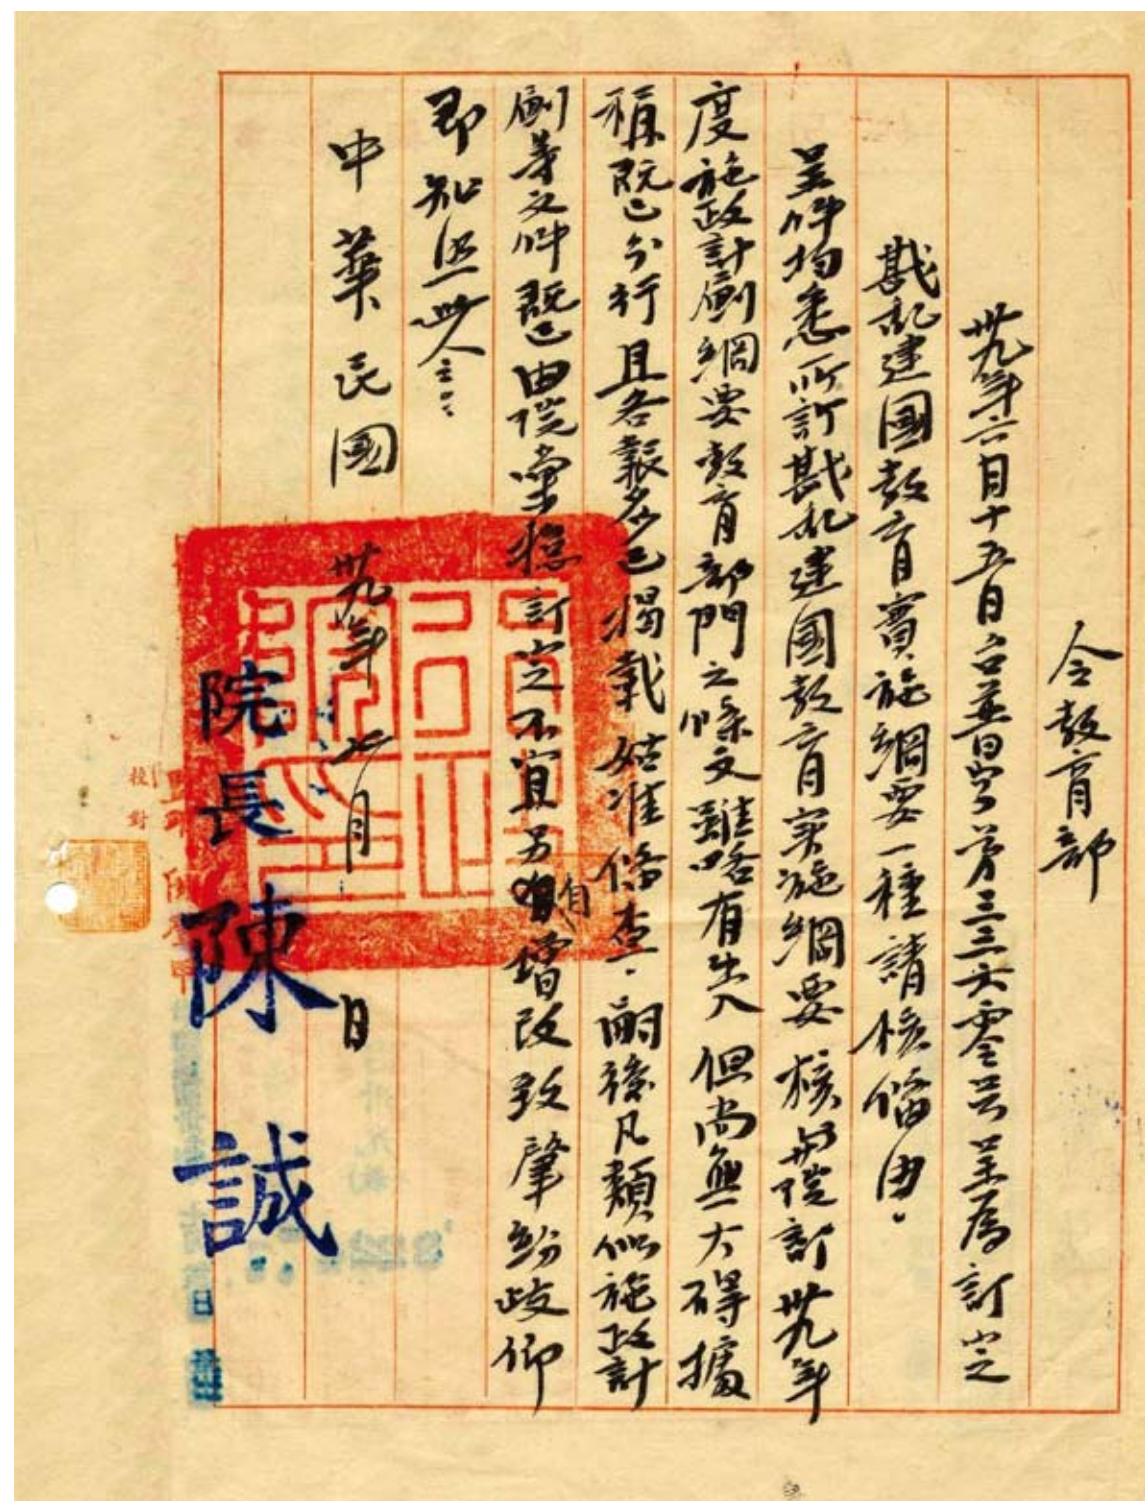 令教育部
卅九年六月十五日台普字第三三六零號呈為訂定
戡亂建國教育實施綱要一種請核備由。
呈件均悉所訂戡亂建國教育实施綱要核與院訂卅九年
度施政計劃綱要教育部門之條文雖略有出入但尚無大碍據
稱既已分行且各報多已揭載姑准備查．嗣後凡類似施政計
劃等文件既已由院彙總訂定不宜另自增改致肇紛歧仰
即知照此令
中華民國 卅九年 七月 日
院長 陳誠
校對